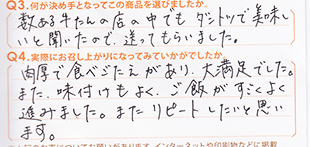 Q3.何が決め手となってこの商品を選びましたか。
数ある牛たんの店の中でも ダントツで美味し
いと聞いたので、送ってもらいました。
Q4.実際にお召し上がりになってみていかがでしたか。
肉厚で食べごたえがあり、大満足でした。
また、味付けもよく、ご飯がすごくよく
進みました。またリピートしたいと思い
ます。